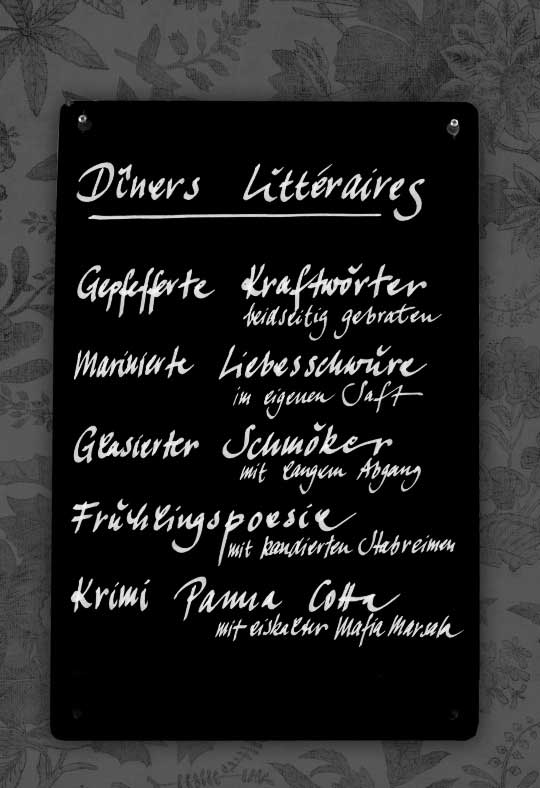 Dîners Littéraires
Gepfefferte Kraftwörter
beidseitig gebraten
Marinierte Liebesschwüre
im eigenen Saft
Glasierter Schmöker
mit langem Abgang
Frühlingspoesie
mit kandierten Stabreimen
Krimi Panna Cotta
mit eiskalter Mafia Marsala